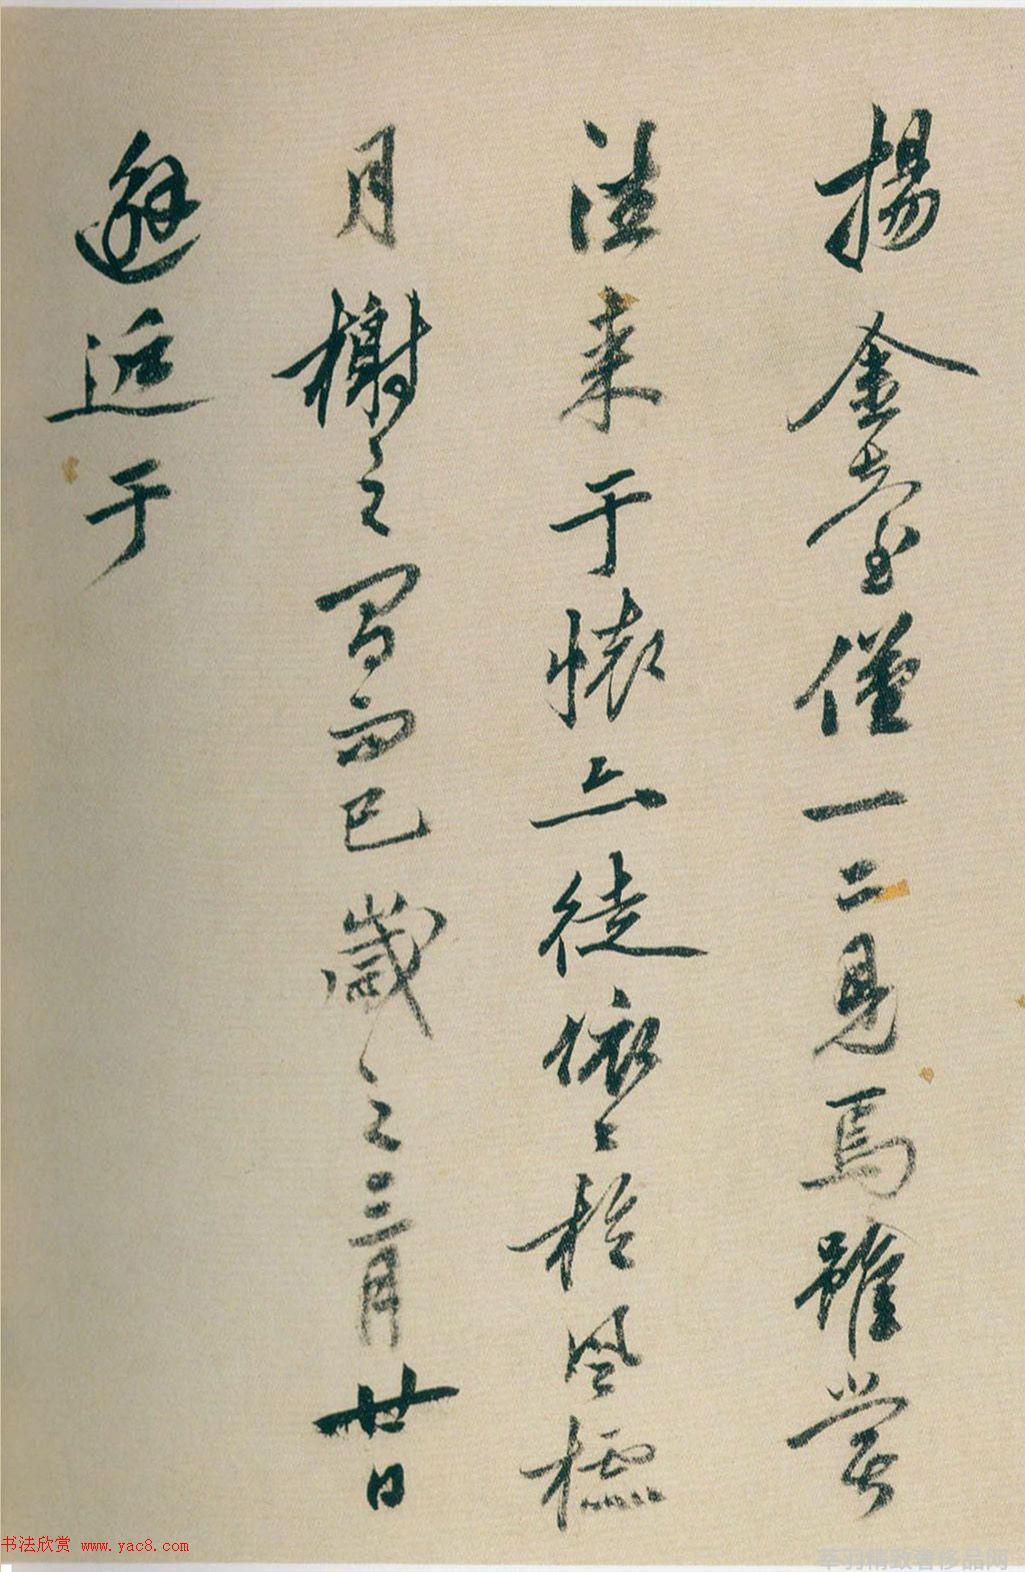 揚金臺僅一二見焉雖嘗
往来于懐亦徒依〻於風標
月榭之間而已歲之三月廿日
邂逅于
书法欣赏 www.yac8.com